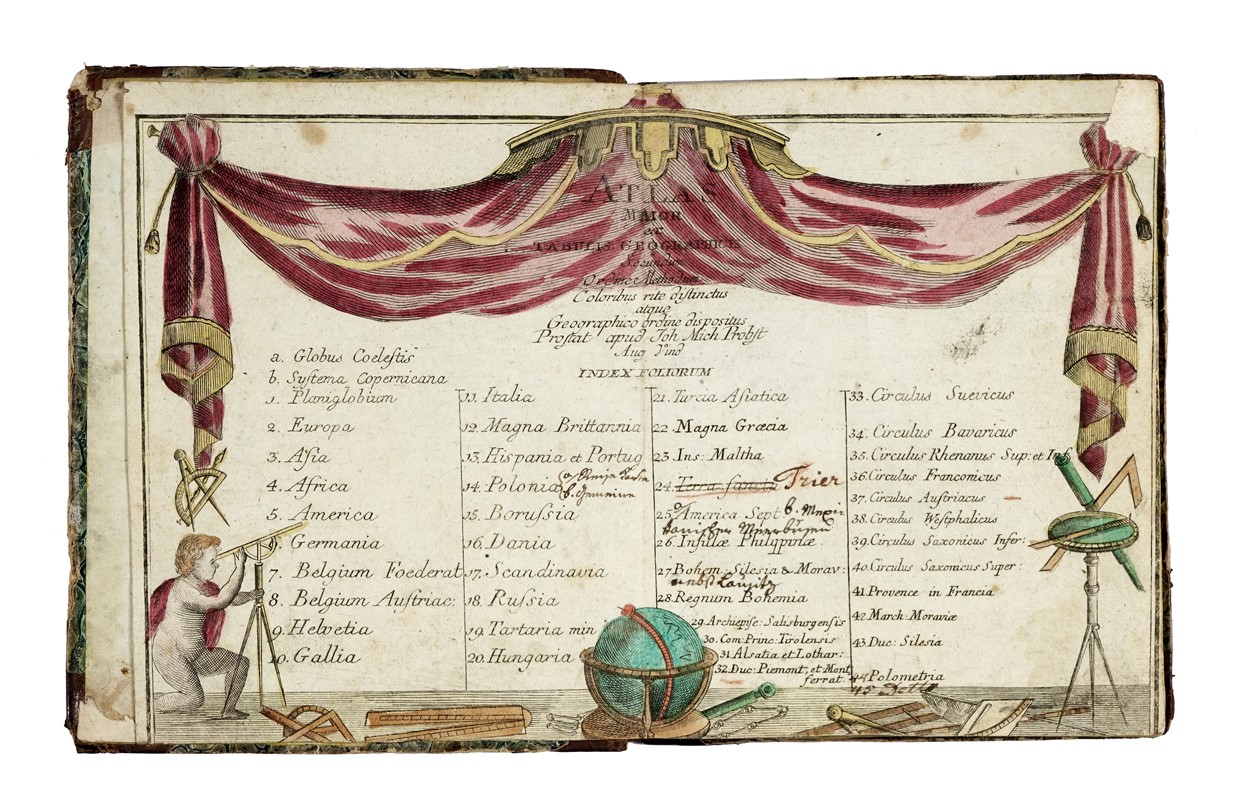 ATLAS
MAIOR
ex
TABULIS GEOGRAPHICIS
Secundum
Coloribus rite distinctus
atque
Geographico ordine dispositus
Prostat apud Joh Mich Probst
Aug Vind
INDEX FOLIORUM
a. Globus Coelestis
b. Systema Copernicana
1. Planiglobium
2. Europa
3. Asia
4. Africa
5. America
6. Germania
7. Belgium Foederat
8. Belgium Austriac:
9. Helvetia
10. Gallia
11. Italia
12. Magna Brittannia
13. Hispania et Portug
14. Polonia a
b.
15. Borussia
16. Dania
17. Scandinavia
18. Russia
19. Tartaria min
20. Hungaria
21. Turcia Asiatica
22. Magna Græcia
23. Ins: Maltha
24. Terra sancta Trier
25. America Sept b.
26. Insulæ Philippinæ
27 Bohem: Silesia & Morav:
nebst Lausitz
28. Regnum Bohemia
29. Archiepisc: Salisburgensis
30. Com: Princ: Tirolensis
31 Alsatia et Lothar:
32. Duc: Piemont, et Mont
ferrat.
33. Circulus Suevicus
34. Circulus Bavaricus
35. Circulus Rhenanus Sup: et Inf.
36. Circulus Franconicus
37. Circulus Austriacus
38. Circulus Westphalicus
39. Circulus Saxonicus Infer:
40. Circulus Saxonicus Super:
41 Provence in Francia
42. March: Moraviæ
43. Duc: Silesia
44 Polometria
45